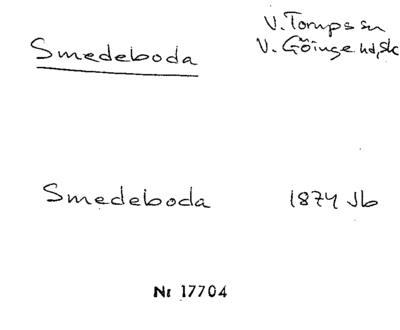 Smedeboda
V. Torups sn
V. Göinge hd, Sk
Smedeboda 1874 Jb
Nr 17704